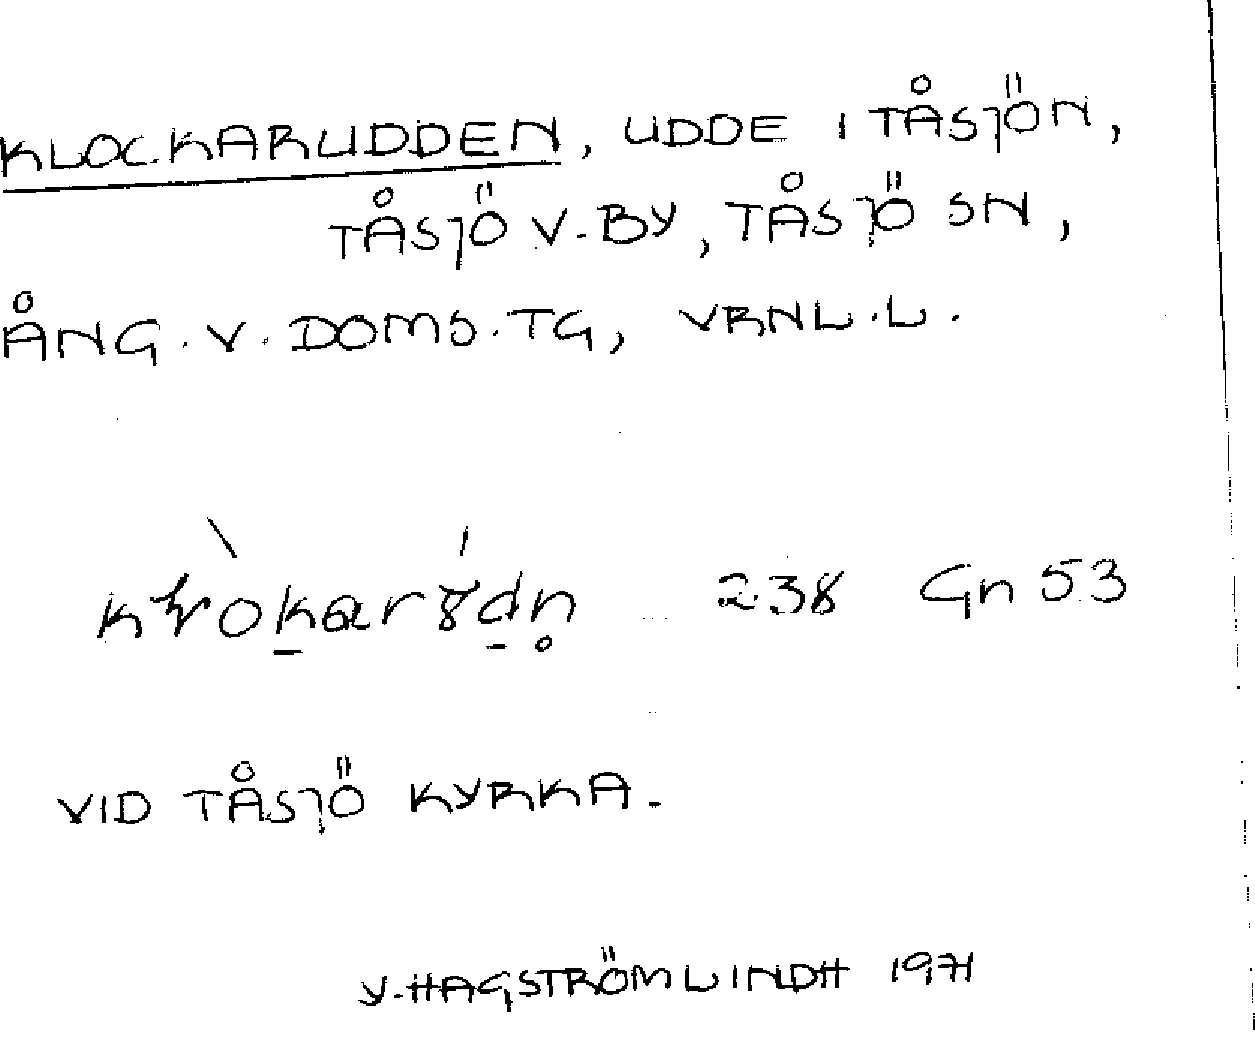 KLOCKARUDDEN, UDDE I TÅSJÖN,
TÅSJÖ V. BY, TÅSJÖ SN,
ÅNG. V. DOMS. TG, VRNL. L.
238 Gn 53
VID TÅSJÖ KYRKA.
Y. HAGSTRÖM LINDH 1971